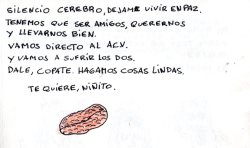 SILENCIO CEREBRO, DEJAME VIVIR EN PAZ.
TENEMOS QUE SER AMIGOS, QUERERNOS
Y LLEVARNOS BIEN.
VAMOS DIRECTO AL ACV.
Y VAMOS A SUFRIR LOS DOS.
DALE, COPATE. HAGAMOS COSAS LINDAS.
TE QUIERE, NIÑITO.